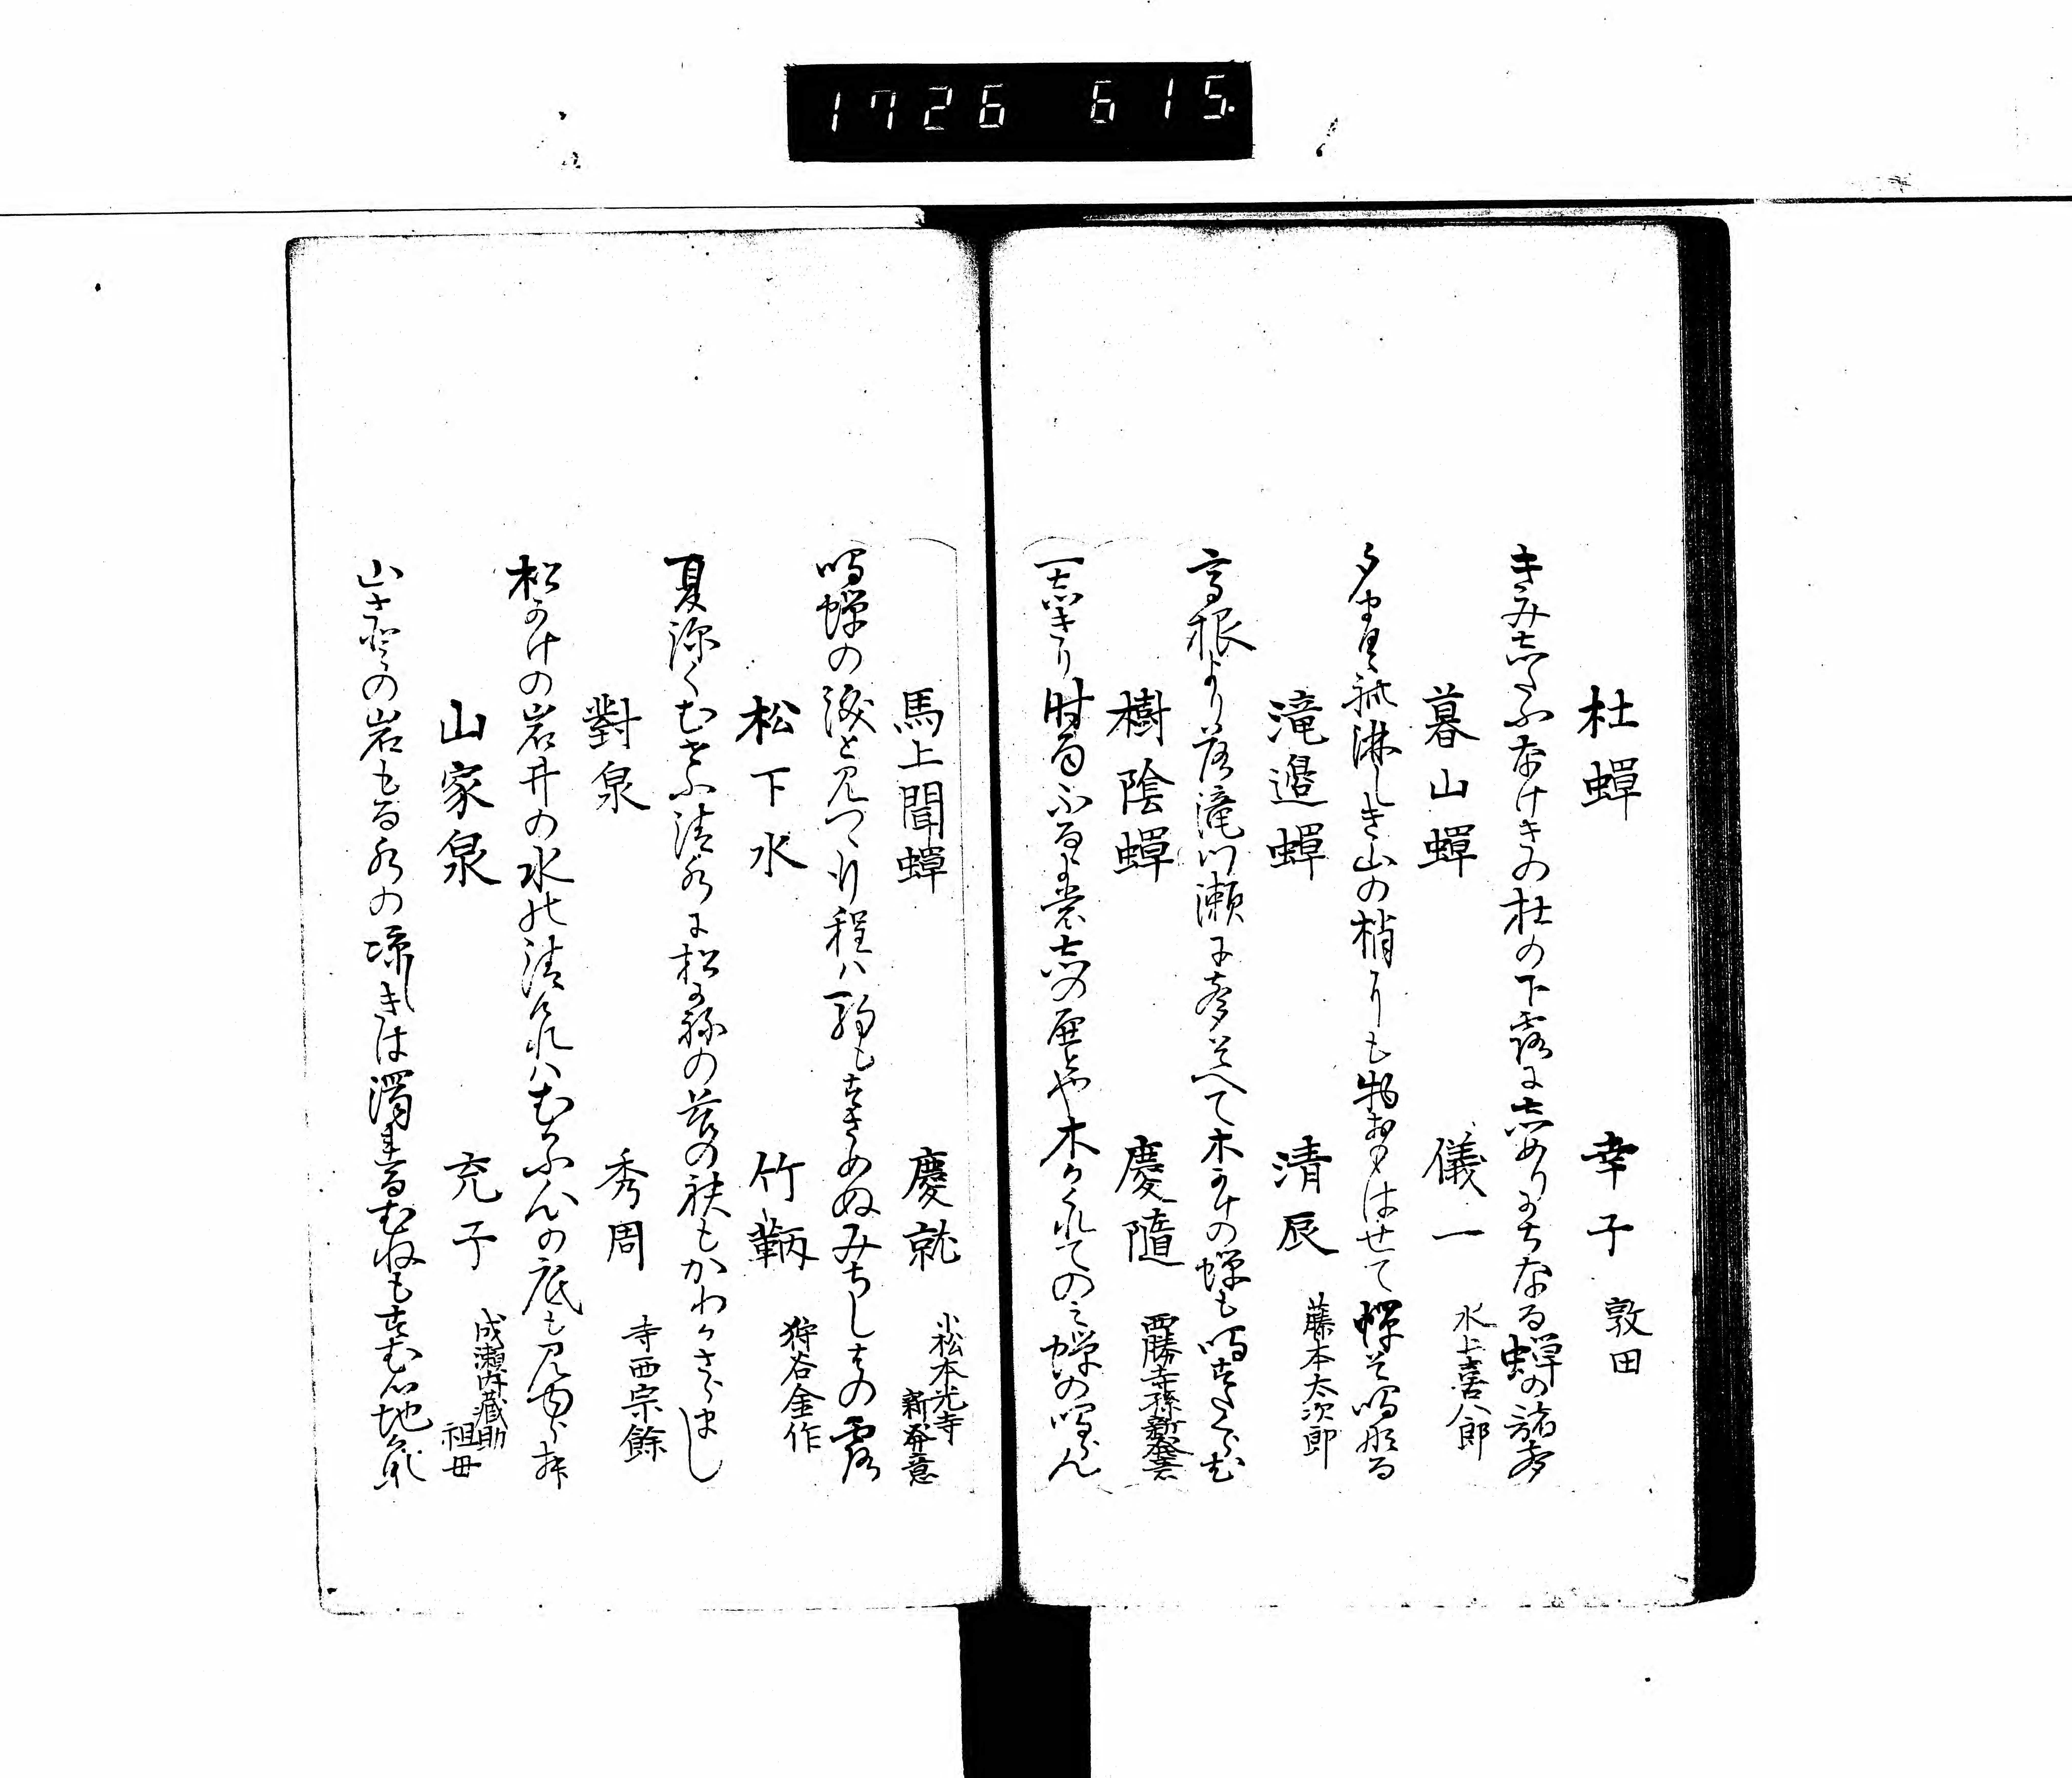 1726 615
杜蟬 幸子 敦田
きみ志たふなけきの杜の下露に志めりかちなる蝉の諸声
暮山蟬 儀一 水上喜八郎
夕ま淋しき山の梢にも物おもはせて蝉そ鳴なる
滝邉蟬 清辰 藤本太次郎
高根より落滝川瀬に声そへて木かけの蝉も鳴すたくらむ
樹陰蟬 慶随 西勝寺孫新発意
一志きり時雨ふるよ志の木かくれてのミ蝉の鳴らん
馬上聞蟬 慶就 小松本光寺新発意
鳴蝉の涙と見つゝ行程ハ駒もすさめぬみちしはの露
松下水 竹鞆 狩谷金作
夏深くむすふ清水に松かねの苔の袂もかわかさらまし
對泉 秀周 寺西宗餘
松かけの岩井の水の清けれハむかふ心の底も見ゆらむ
山家泉 充子 成瀬内蔵助祖母
山さとの岩もる水の涼しきは濁るむねもすむ心地